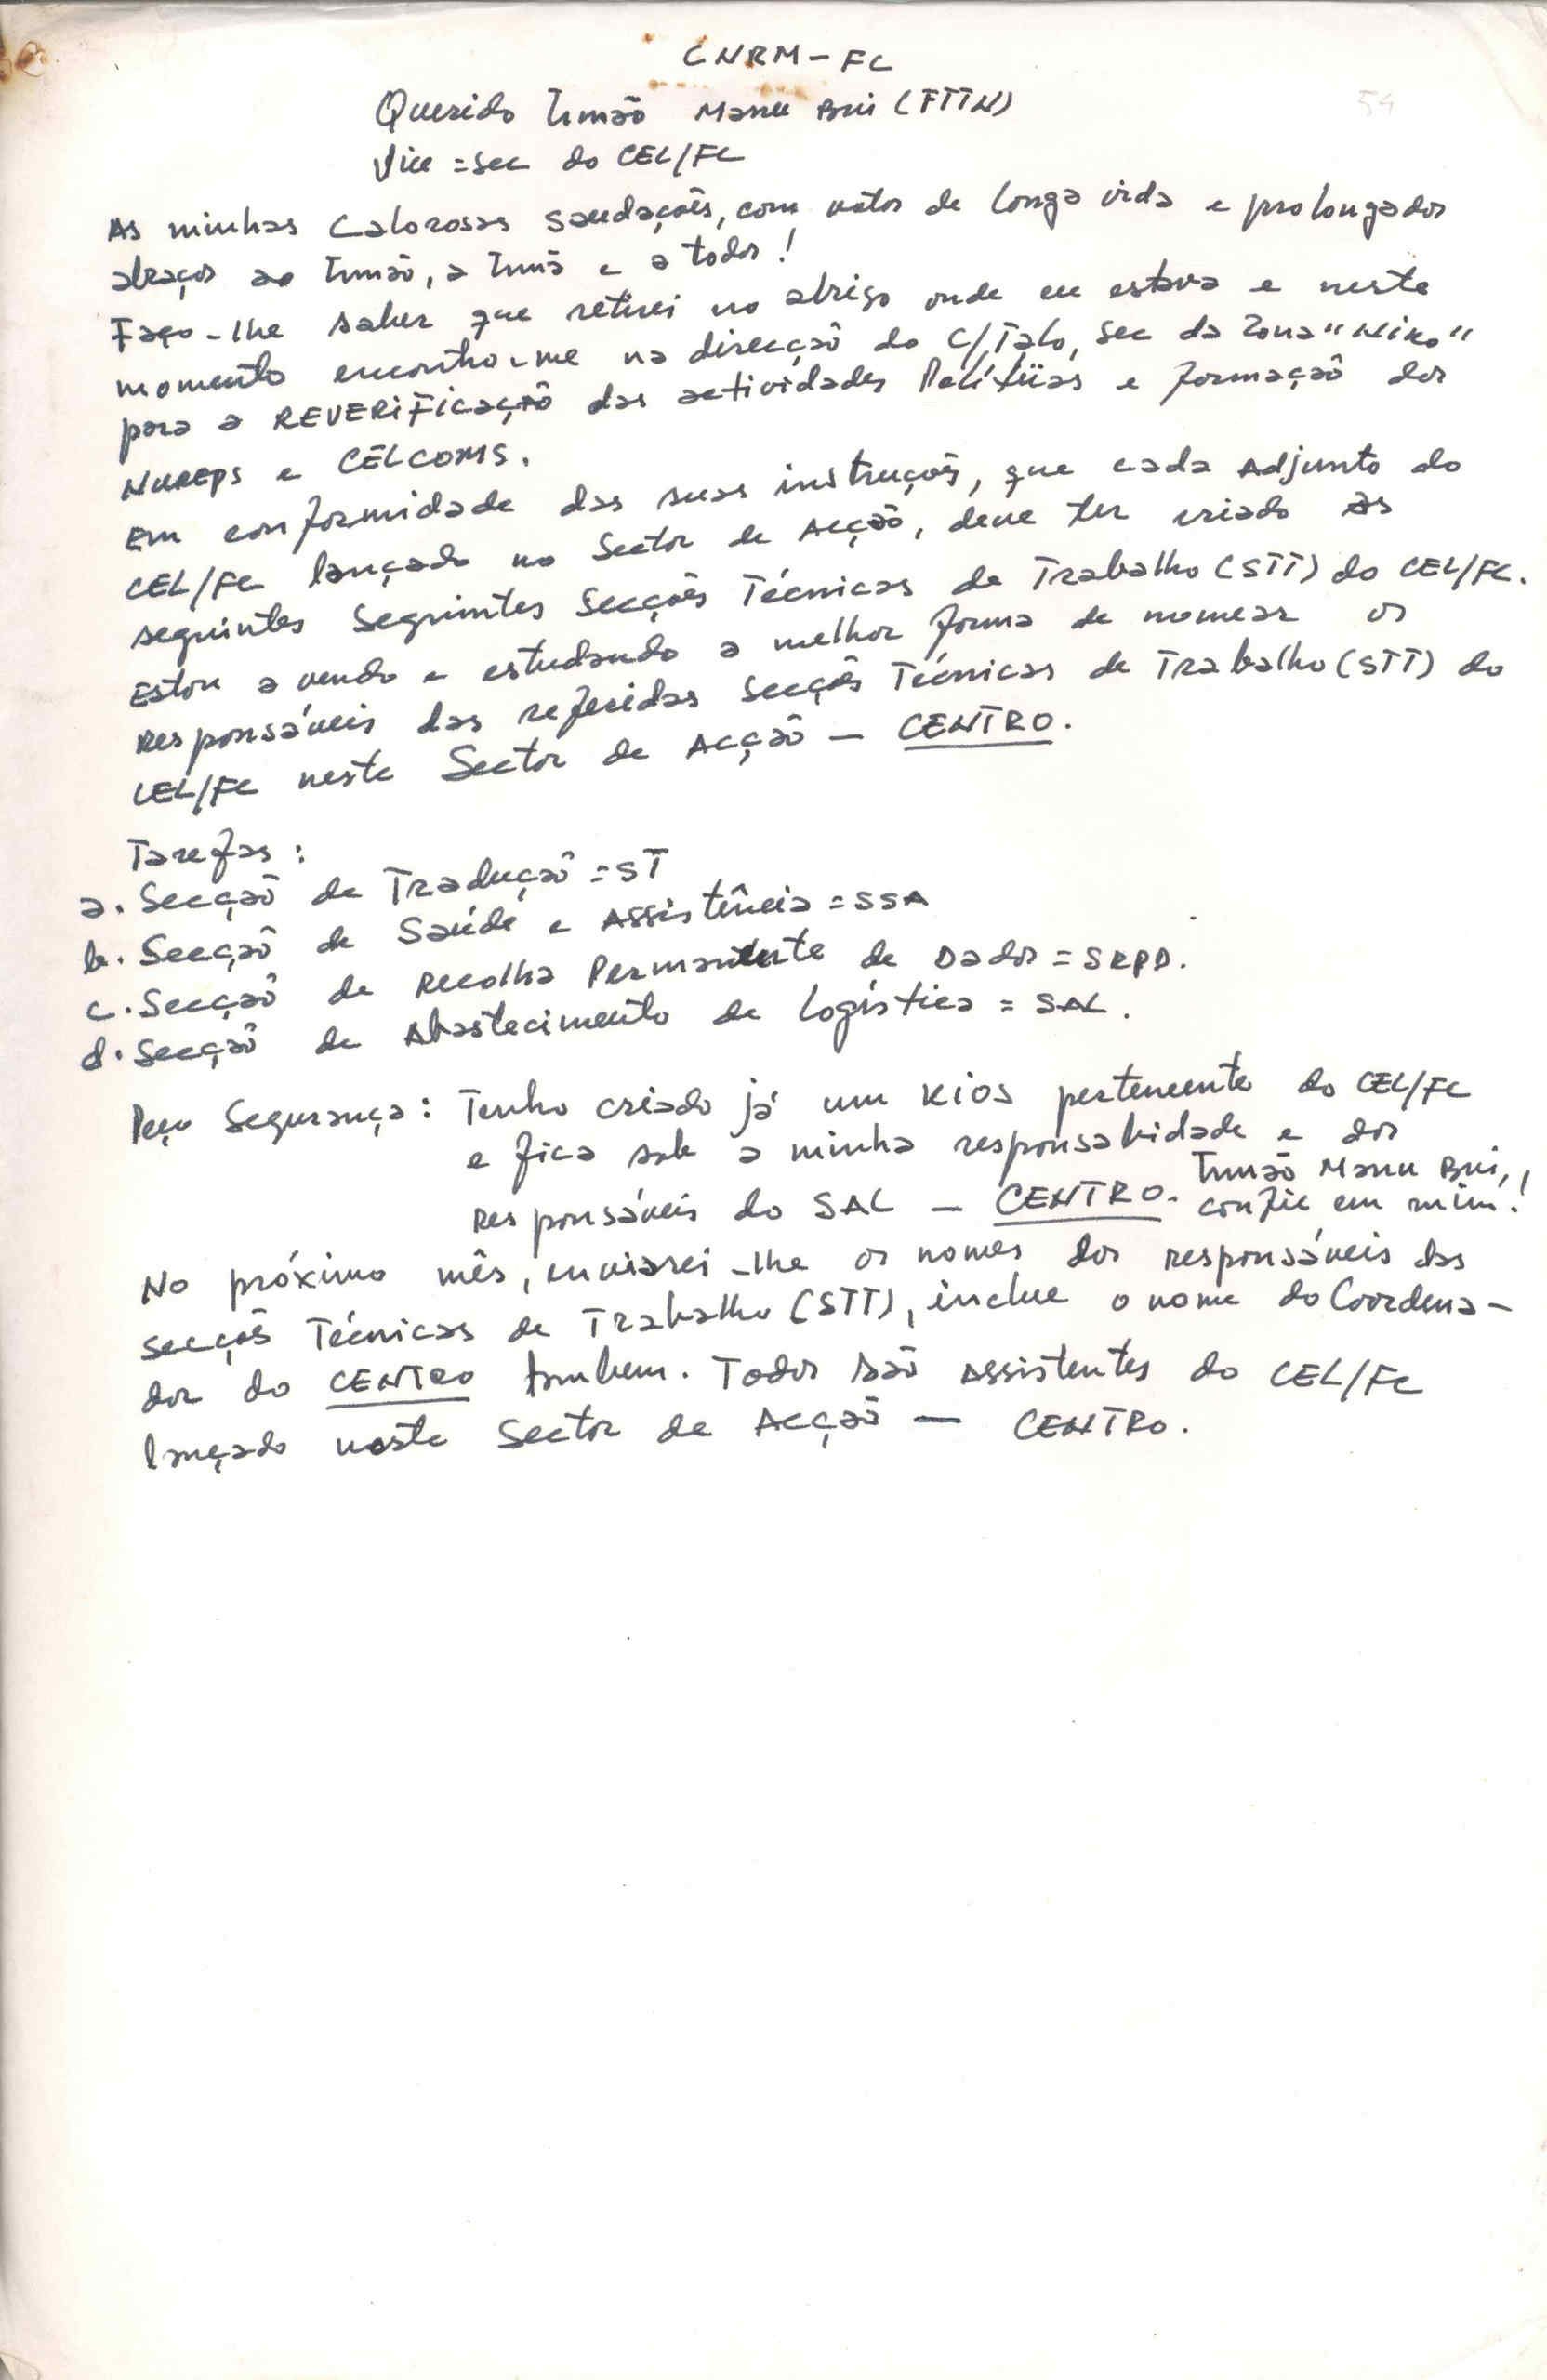 CNRM-FC
54
Querido Irmão Manu Bui (FTTN)
Vice = Sec do CEL/FC
As minhas Calorosas Saudações, com votos de longa vida e prolongados
abraços ao Irmão, a Irmã e a todos!
Faço-lhe saber que retirei no abrigo onde eu estava e neste
momento encontro-me na direcção do C/Talo, Sec da Zona "Niko"
para a REVERIFICAÇÃO das actividades Políticas e formação dos
NUREPS e CELCOMS.
Em conformidade das suas instruções, que cada Adjunto do
CEL/FC lançado no Sector de Acção, deve ter criado as
seguintes Seguintes Secções Técnicas de Trabalho (STT) do CEL/FC.
Estou a vendo e estudando a melhor forma de nomear os
Responsáveis das referidas Secções Técnicas de Trabalho (STT) do
CEL/FC neste Sector de Acção - CENTRO.
Tarefas:
a. Secção de Tradução = ST
b. Secção de Saúde e Assistência = SSA
c. Secção de Recolha Permanente de Dados = SRPD.
d. Secção de Abastecimento de Logística = SAL.
Peço Segurança: Tenho criado já um Kios pertencente do CEL/FC
e fica sob a minha responsabidade e dos
Responsáveis do SAL - CENTRO. Irmão Manu Bui,
confie em mim!
No próximo mês, enviarei-lhe os nomes dos responsáveis das
secções Técnicas de Trabalho (STT), inclue o nome do Coordena-
dor do CENTRO tambem. Todos são Assistentes do CEL/FC
lançado neste Sector de Acção - CENTRO.